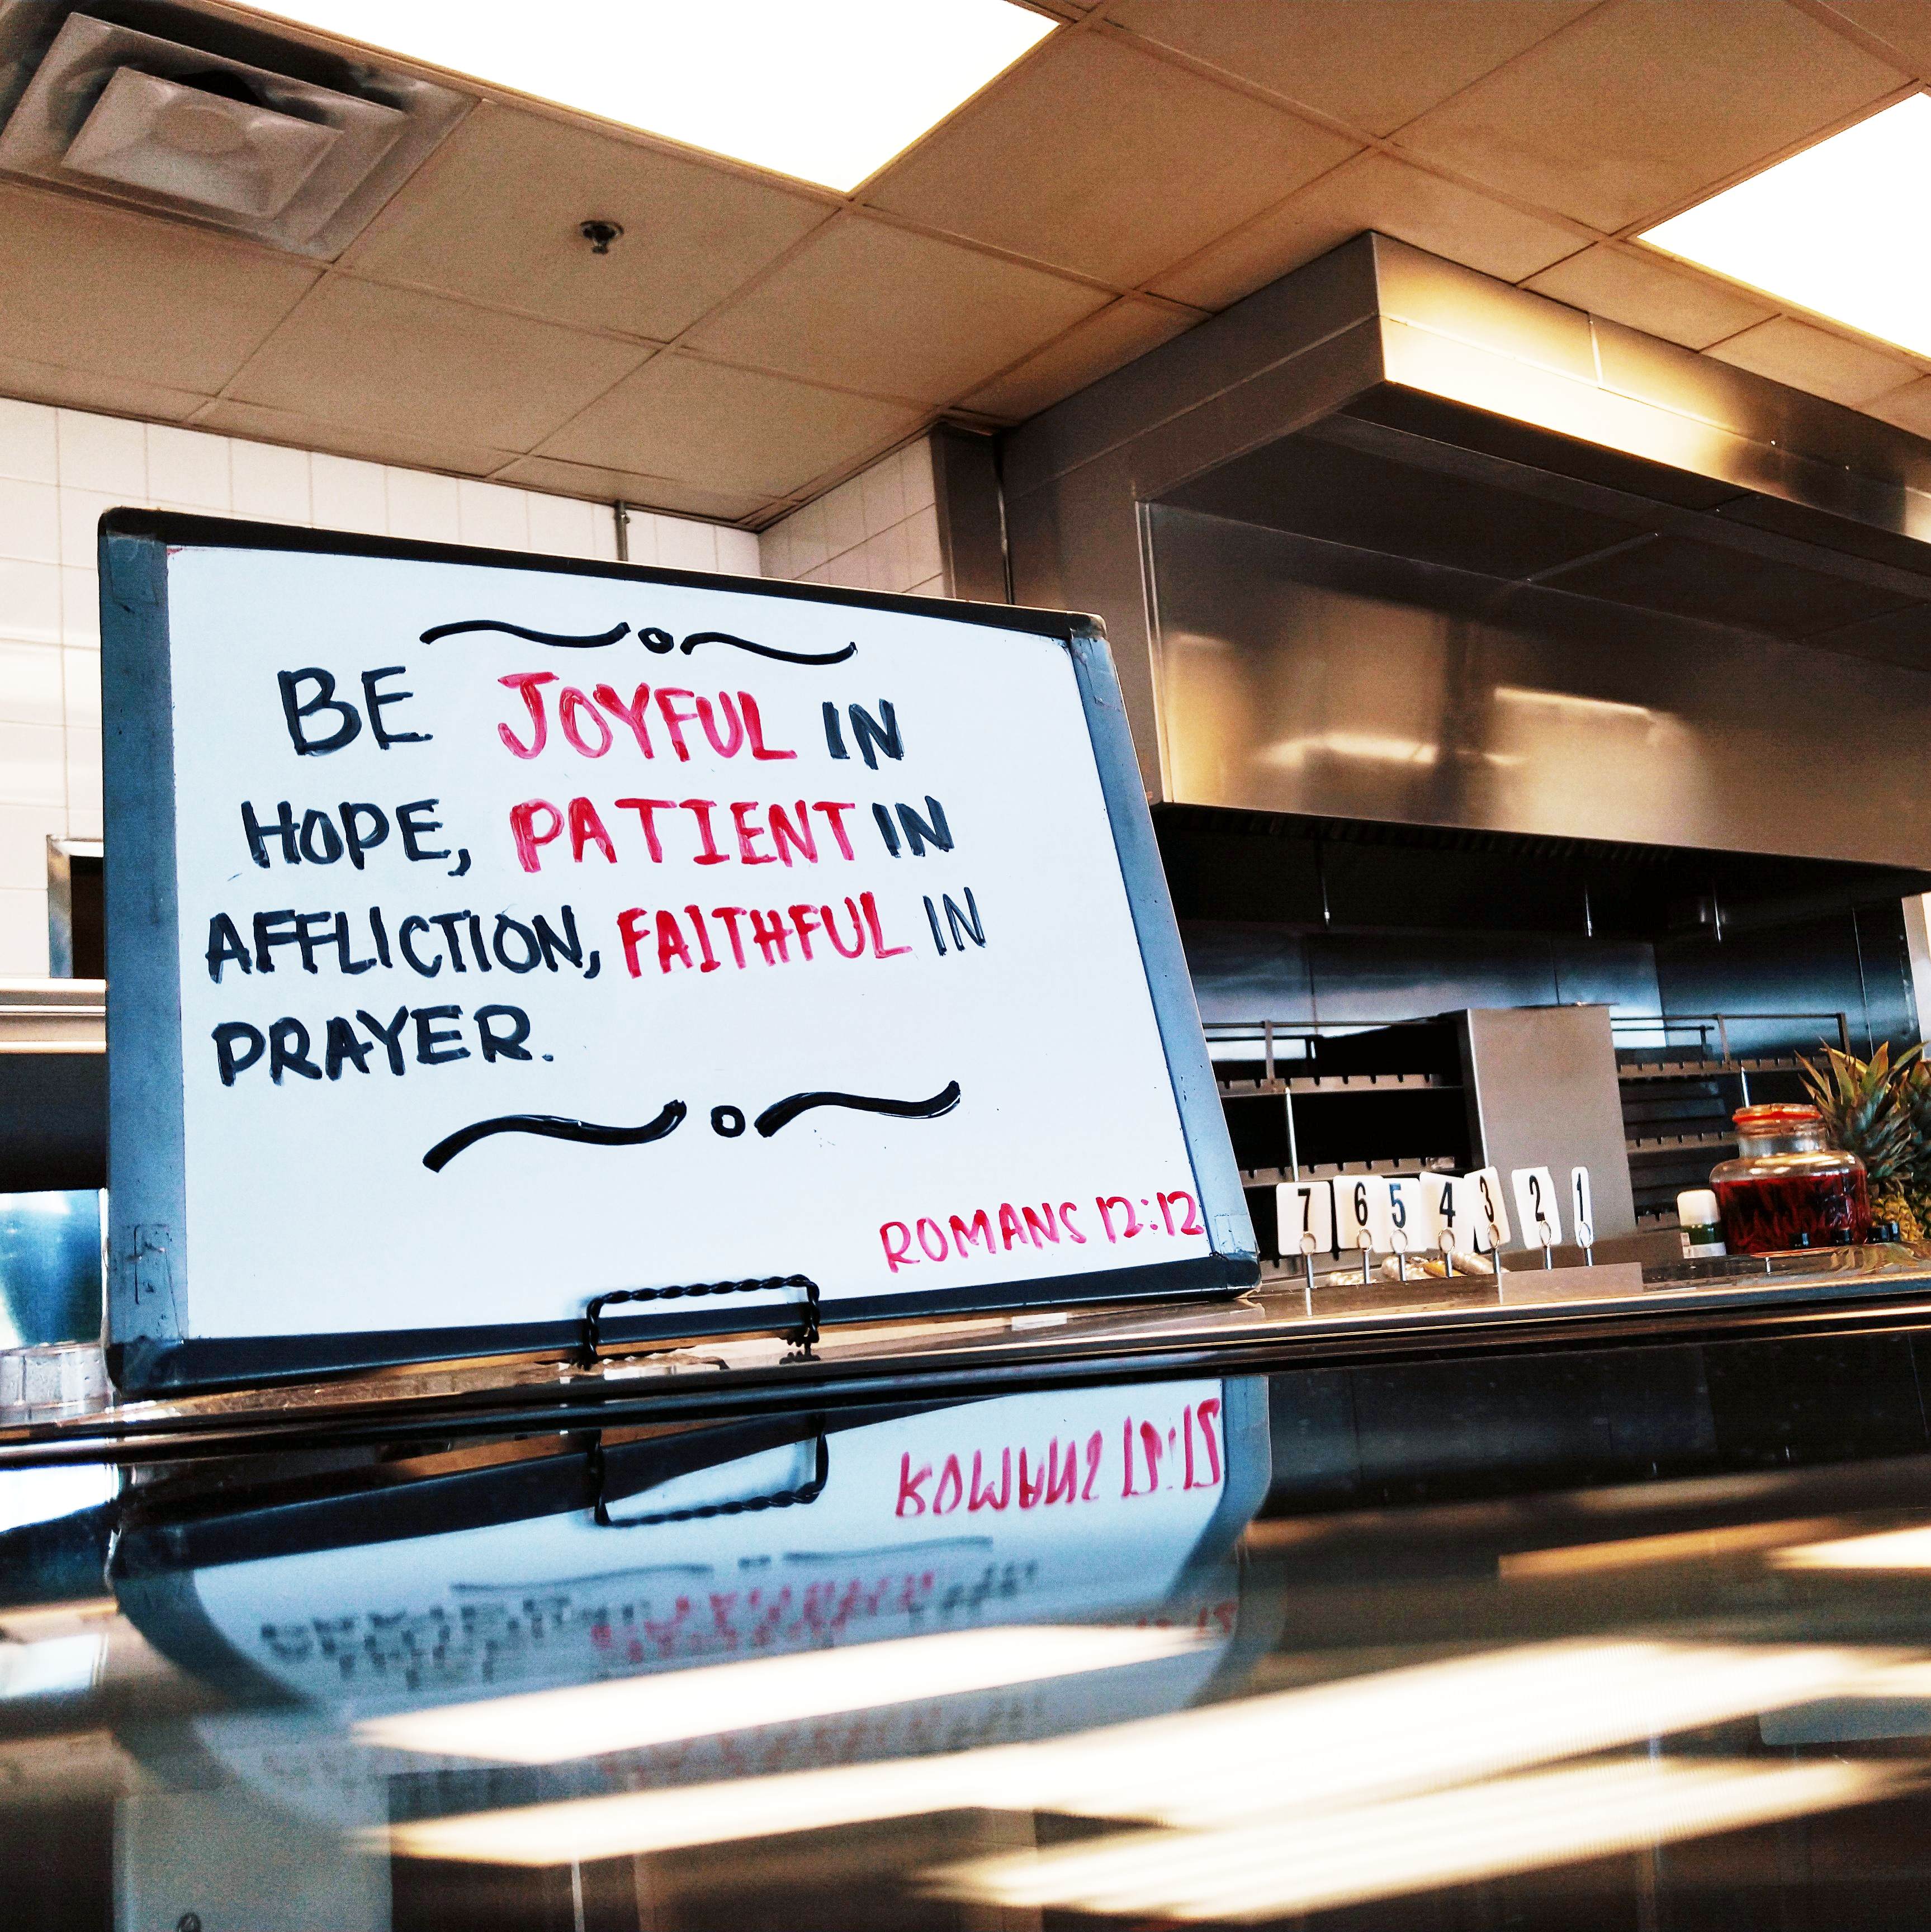 BE JOYFUL IN
HOPE, PATIENT IN
AFFLICTION, FAITHFUL IN
PRAYER.
ROMANS 12:12
7 6 5 4 3 2 1